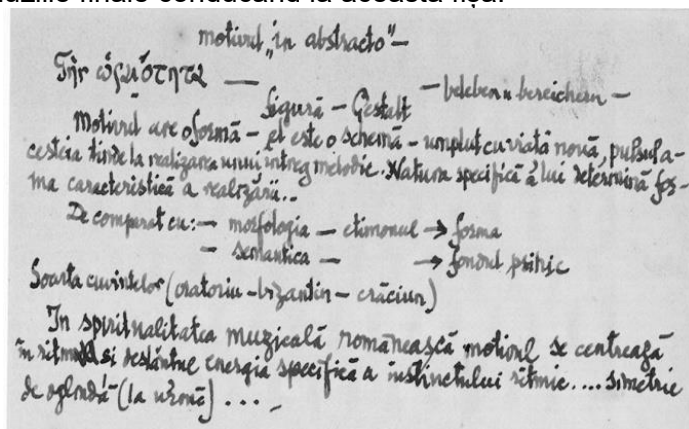 concluziile finale conducând la această fișă:
motivul „in abstracto" —
Τὴν ὡραιότητα —
Figură — Gestalt — beleben u bereichern —
Motivul are o formă — el este o schemă — umplut cu viață nouă, pulsul a-
cesteia tinde la realizarea unui întreg melodic. Natura specifică a lui determină for-
ma caracteristică a realizării..
De comparat cu: — morfologia — etimonul → forma
— semantica — → fondul psihic
Soarta cuvintelor (oratoriu — bizantin — crăciun)
In spiritualitatea muzicală românească motivul se centrează
în ritm și energia specifică a instinctului ritmic .... simetrie
de oglindă (la urmă) ....